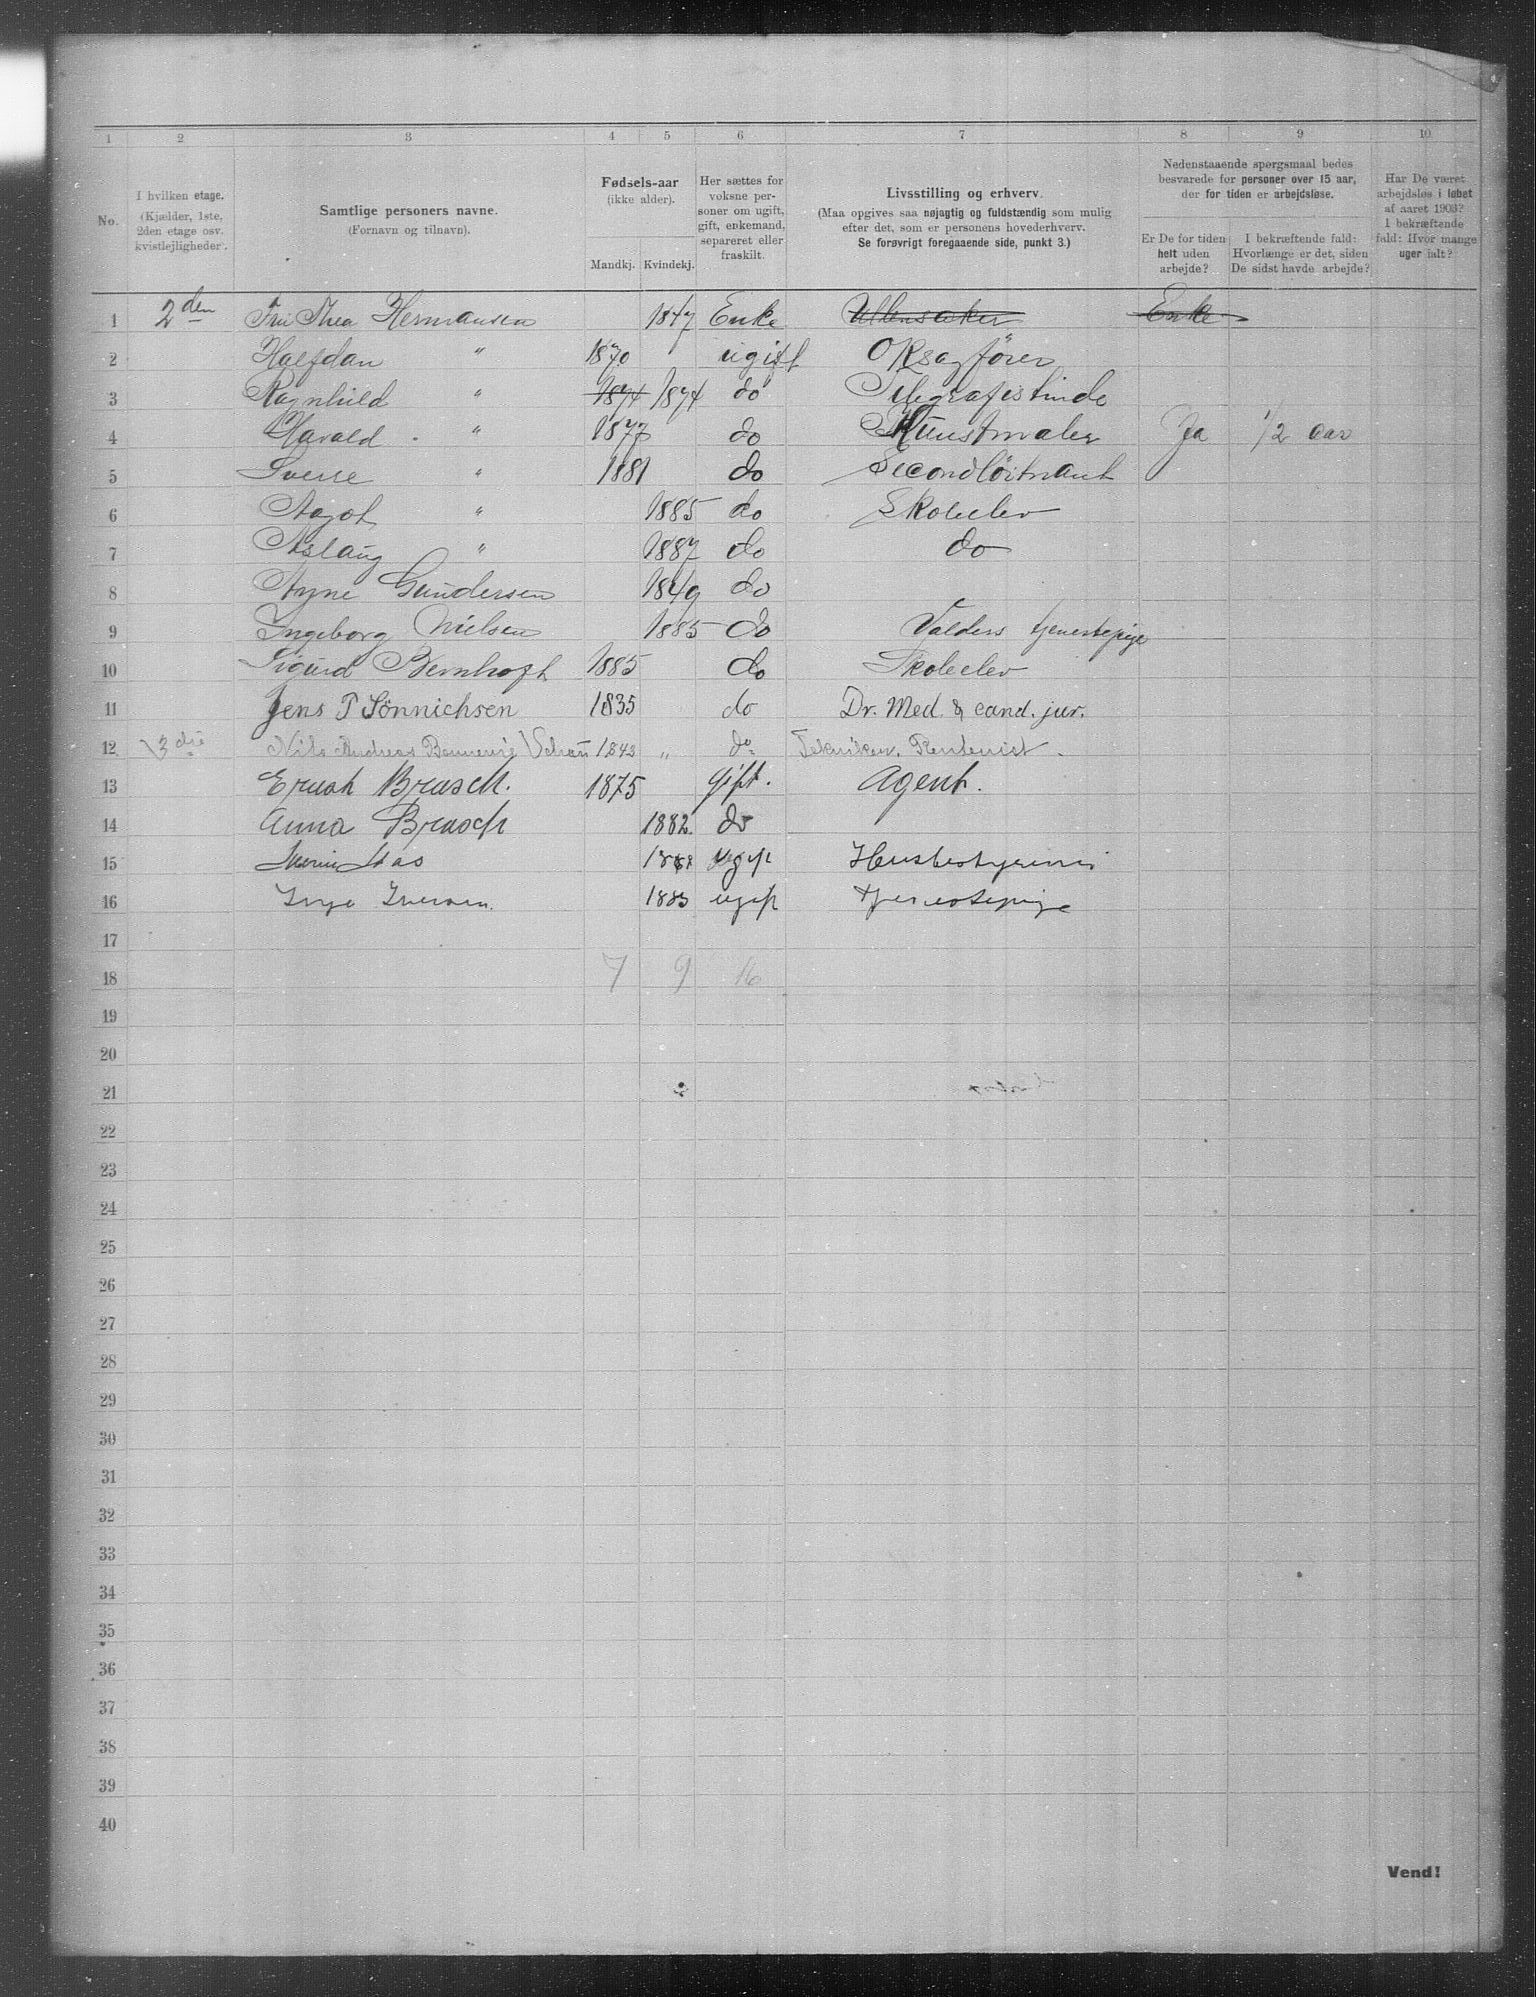 1 2 3 4 5 6 7 8 9 10
No.
I hvilken etage.
(Kjælder, 1ste,
2den etage osv.
kvistlejligheder.
Samtlige personers navne.
(Fornavn og tilnavn).
Fødsels-aar
(ikke alder).
Mandkj. Kvindekj.
Her sættes for
voksne per-
soner om ugift,
gift, enkemand,
separeret eller
fraskilt.
Livsstilling og erhverv.
(Maa opgives saa nøjagtig og fuldstændig som mulig
efter det, som er personens hovederhverv.
Se forøvrigt foregaaende side, punkt 3.)
Nedenstaaende spørgsmaal bedes
besvarede for personer over 15 aar,
der for tiden er arbejdsløse.
Er De for tiden
helt uden
arbejde?
I bekræftende fald:
Hvorlænge er det, siden
De sidst havde arbejde?
Har De været
arbejdsløs i løbet
af aaret 1903?
I bekræftende
fald: Hvor mange
uger ialt?
1 2den Fru Thea Hermansen 1847 Enke Ullensaker Enke
2 Halfdan " 1870 ugift Oksagfører
3 Ragnhild " 1874 1874 do Telegrafistinde
4 Harald " 1877 do Kunstmaler Ja 1/2 aar
5 Sverre " 1881 do Secondløitnant
6 Aagot " 1885 do Skoleelev
7 Aslaug " 1887 do do
8 Gundersen 1849 do
9 Ingeborg Nielsen 1885 do Valders tjenestepige
10 Sigurd Bernhoft 1885 do Skoleelev
11 Jens P Sønnichsen 1835 do Dr. Med. & cand. jur.
12 3die Nils Andreas 1843 " do Tekniker, Rentenist.
13 Brasch. 1875 gift. Agent.
14 Anna Brasch 1882. do
15 ugift Husbestyrerinde
16 Inga Iversen. 1883 ugift tjenestepige
17
18 7 9 16
19
20
21
22
23
24
25
26
27
28
29
30
31
32
33
34
35
36
37
38
39
40
Vend!